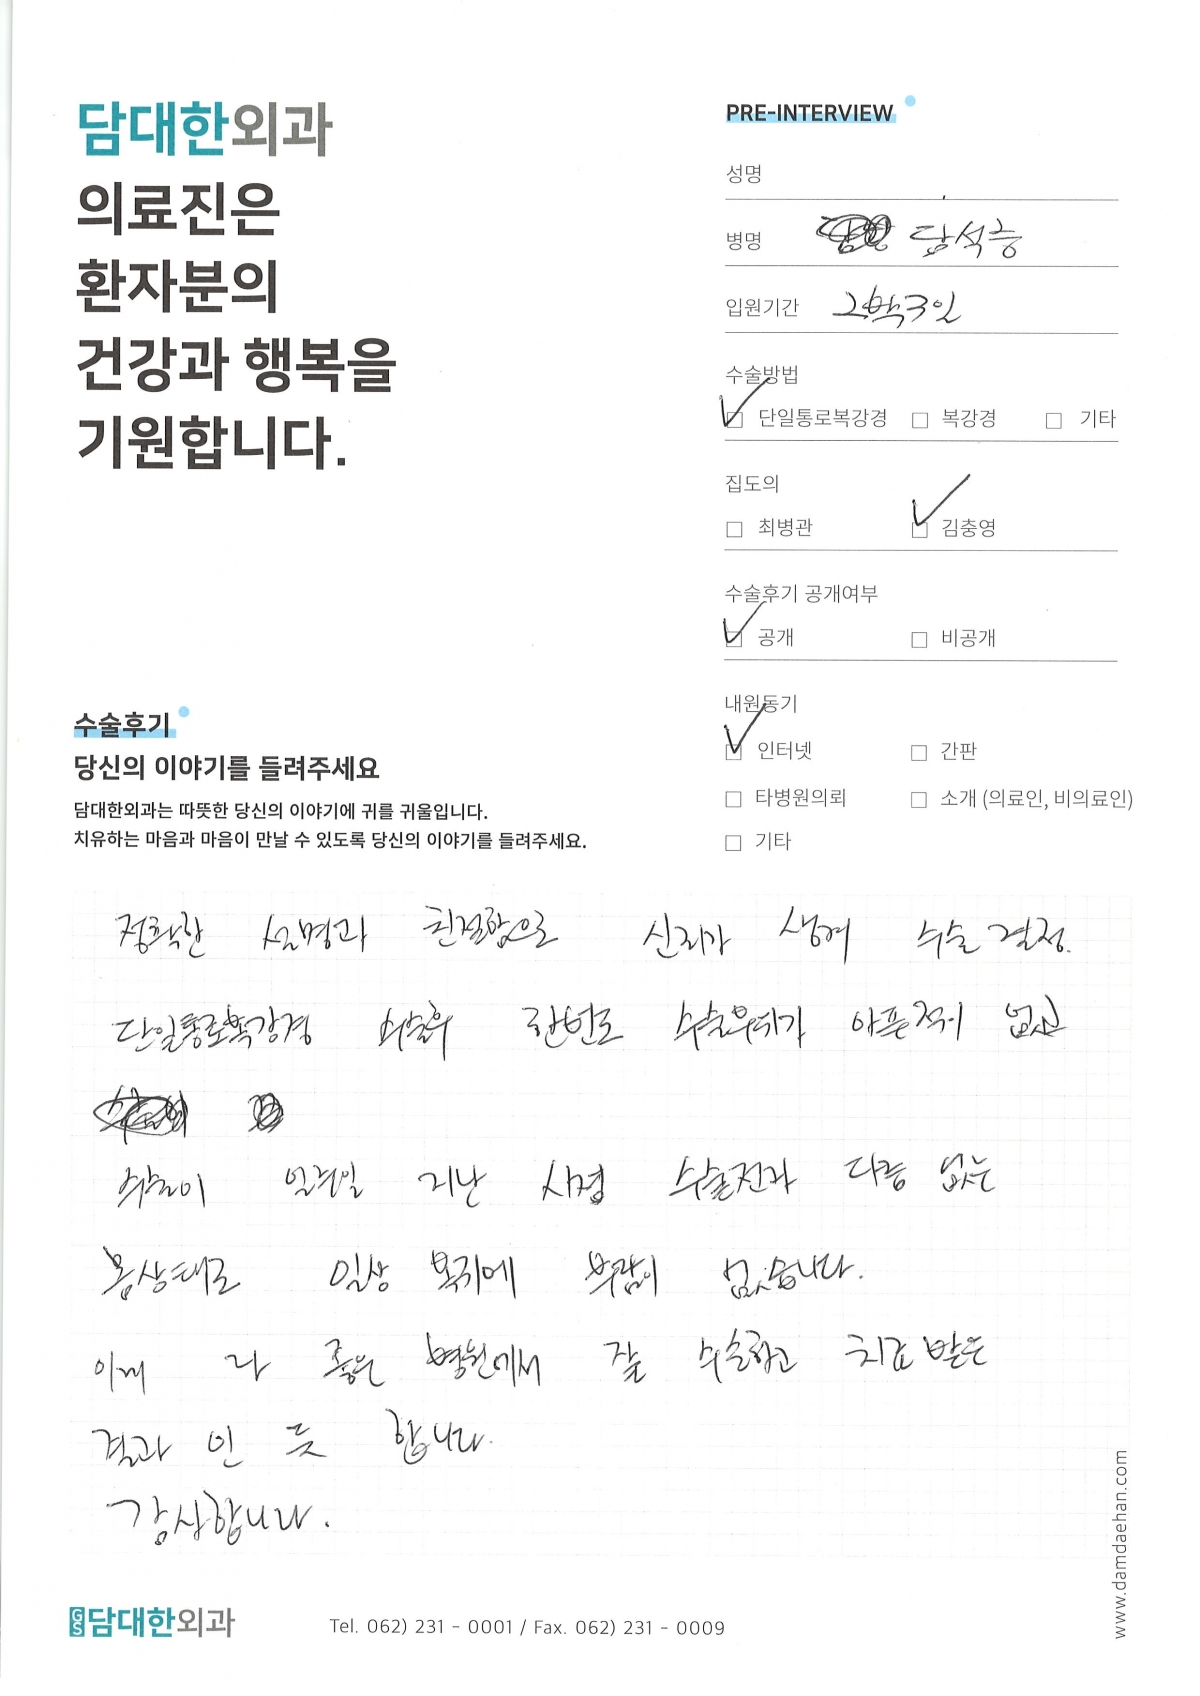 담대한외과
의료진은
환자분의
건강과 행복을
기원합니다.
PRE-INTERVIEW
성명
병명 담석증
입원기간 2박3일
수술방법
단일통로복강경 복강경 기타
집도의
최병관 김충영
수술후기 공개여부
공개 비공개
내원동기
인터넷 간판
타병원의뢰 소개 (의료인, 비의료인)
기타
수술후기
당신의 이야기를 들려주세요
담대한외과는 따뜻한 당신의 이야기에 귀를 귀울입니다.
치유하는 마음과 마음이 만날 수 있도록 당신의 이야기를 들려주세요.
정확한 설명과 친절함으로 신뢰가 생겨 수술 결정.
단일통로복강경 수술후 한번도 수술부위가 아픈적이 없고
수술이 일주일 지난 시점 수술전과 다름 없는
몸상태로 일상 복귀에 부담이 없습니다.
이게 다 좋은 병원에서 잘 수술하고 치료 받은
결과 인 듯 합니다.
감사합니다.
GS담대한외과
Tel. 062) 231 - 0001 / Fax. 062) 231 - 0009
www.damdaehan.com